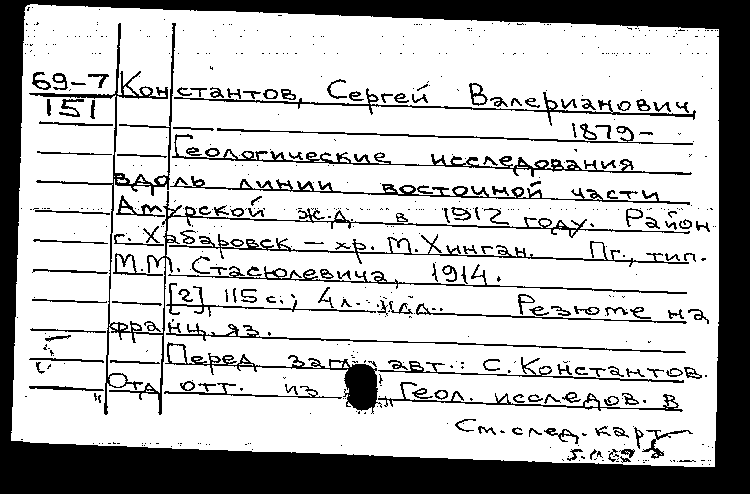 69-7
151
Константов, Сергей Валерианович,
1879-
Геологические исследования
вдоль линии восточной части
Амурской ж.д. в 1912 году. Район
г. Хабаровск – хр. М.Хинган. Пг., тип.
М.М. Стасюлевича, 1914.
[2], 115 с.; 4 л. илл. Резюме на
франц. яз.
Перед загл. авт.: С. Константов.
Отд. отт. из „Геол. исследов. в
См. след. карт